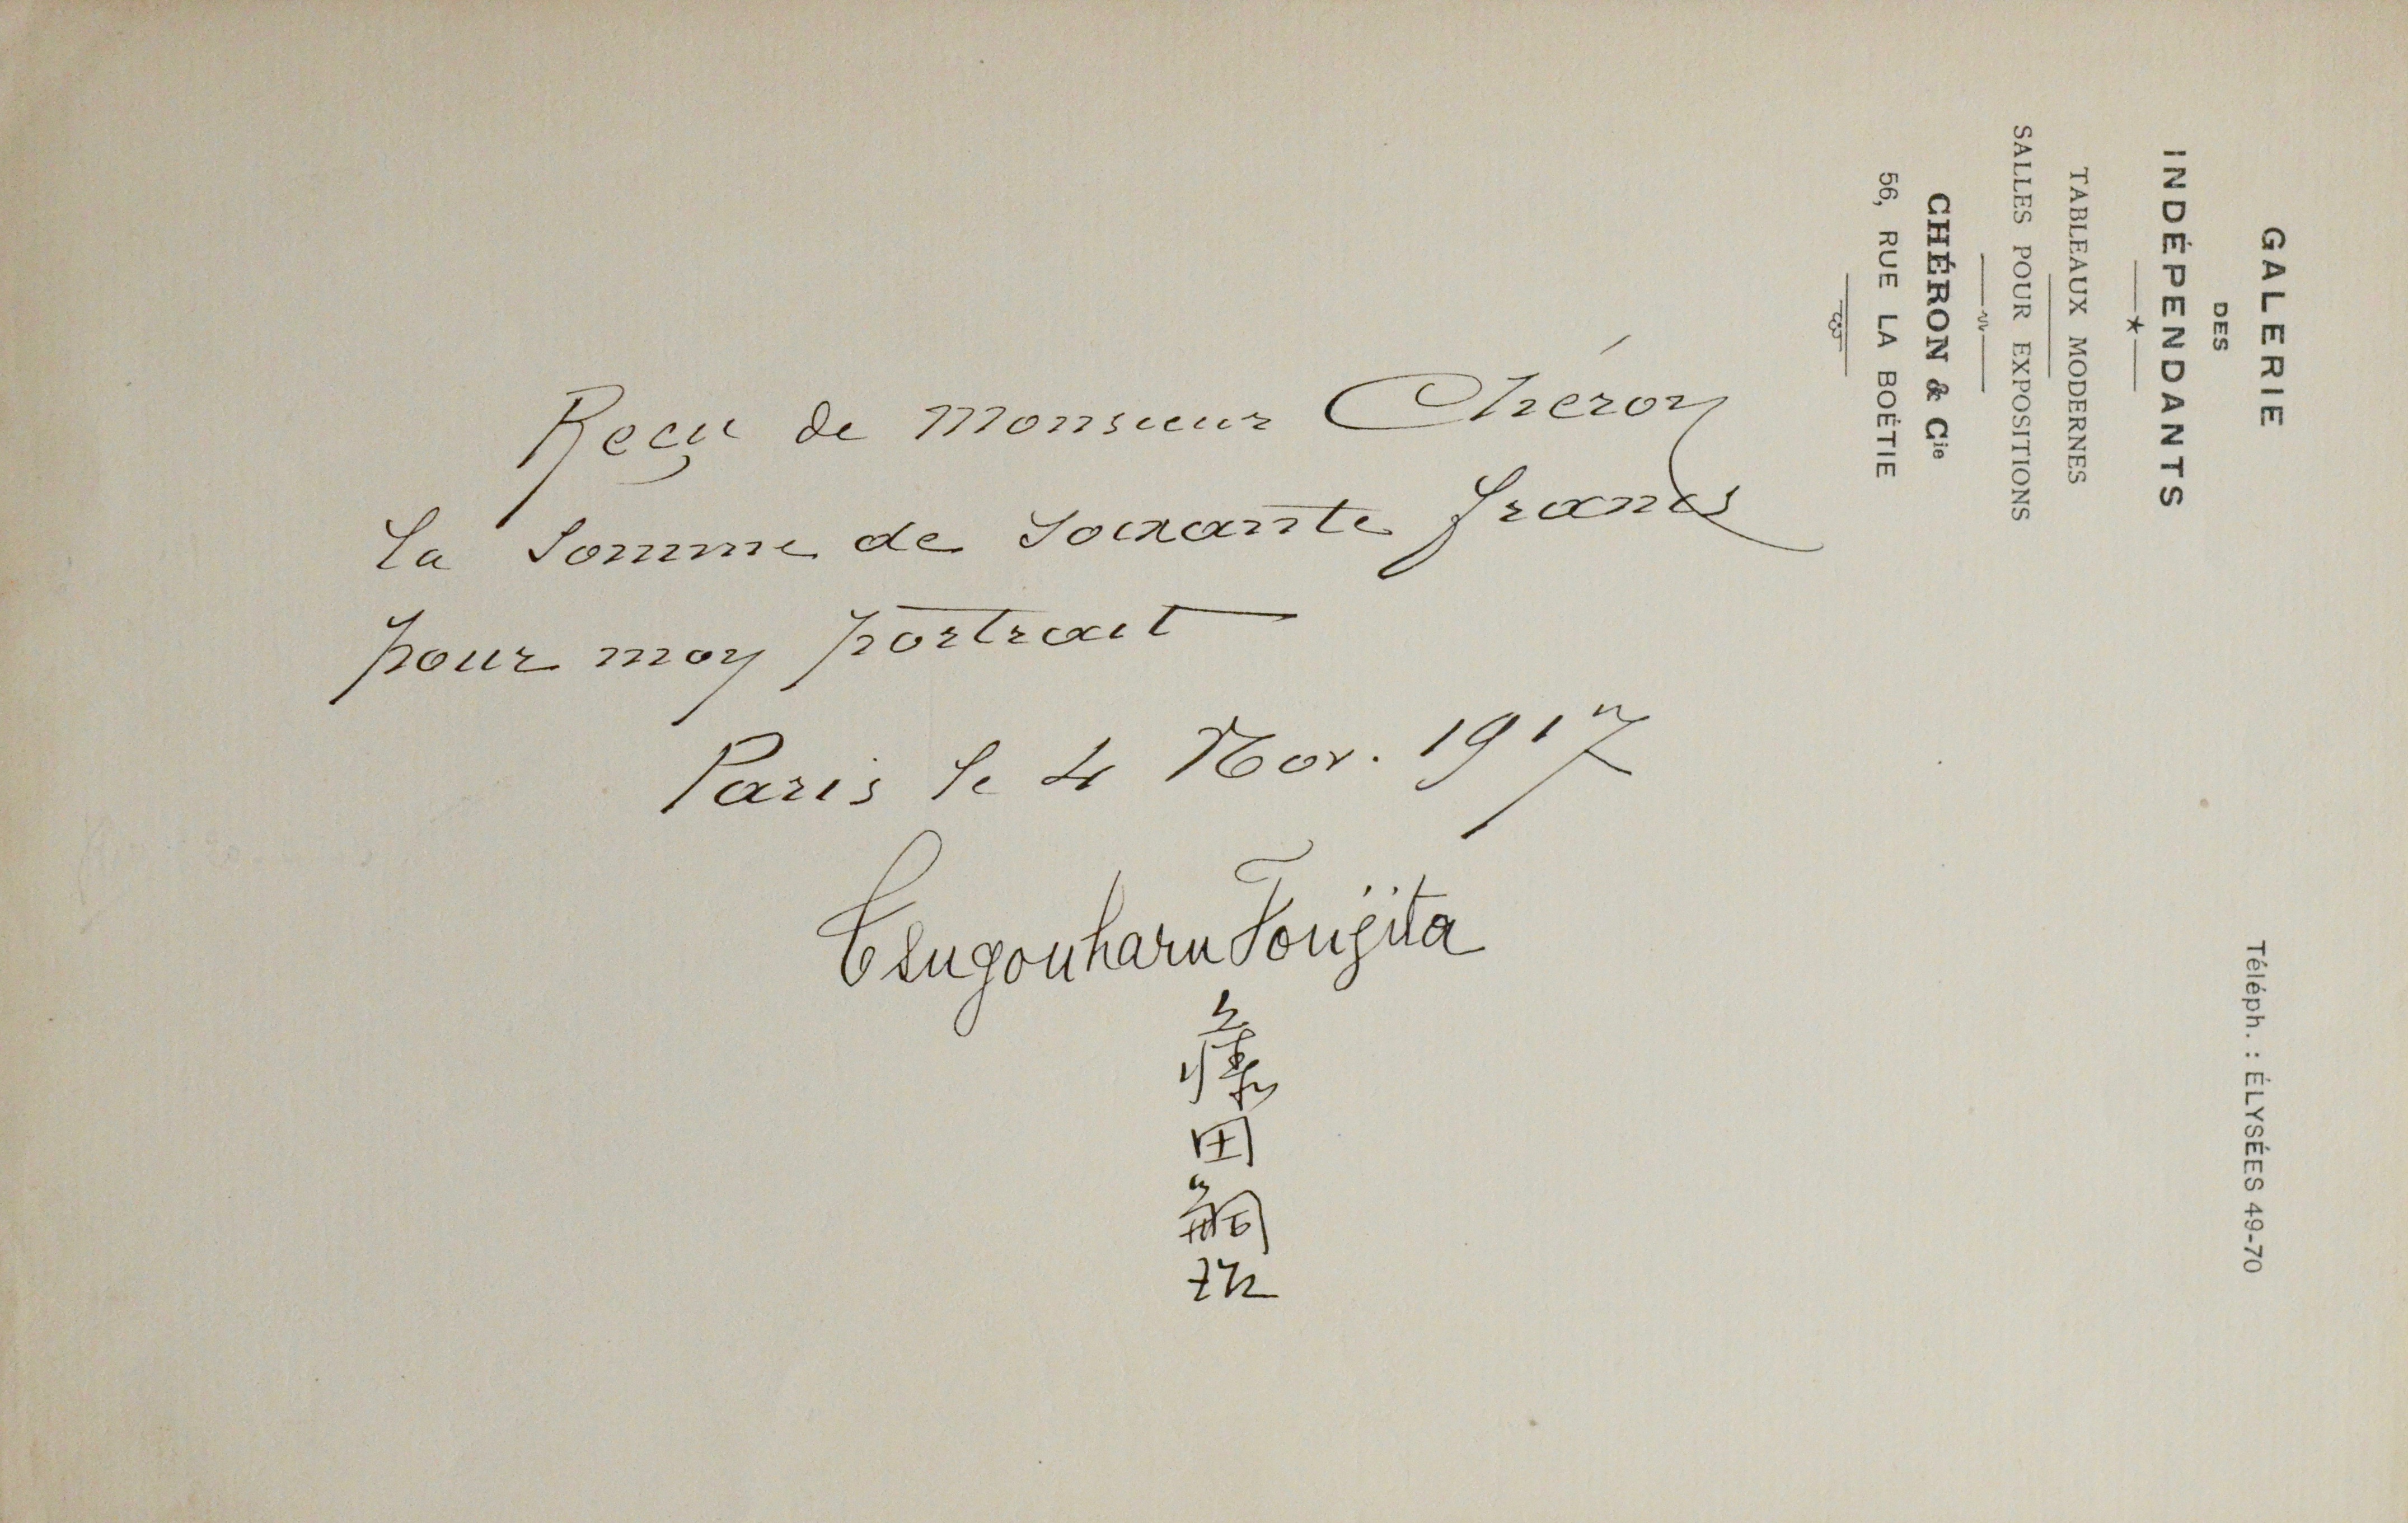 GALERIE
DES
INDÉPENDANTS
TABLEAUX MODERNES
SALLES POUR EXPOSITIONS
CHÉRON & Cie
56, RUE LA BOÉTIE
Téléph. : ÉLYSÉES 49-70
Reçu de Monsieur Chéron
la somme de soixante francs
pour mon portrait
Paris le 4 Nov. 1917
Tsugouharu Foujita
藤田嗣治